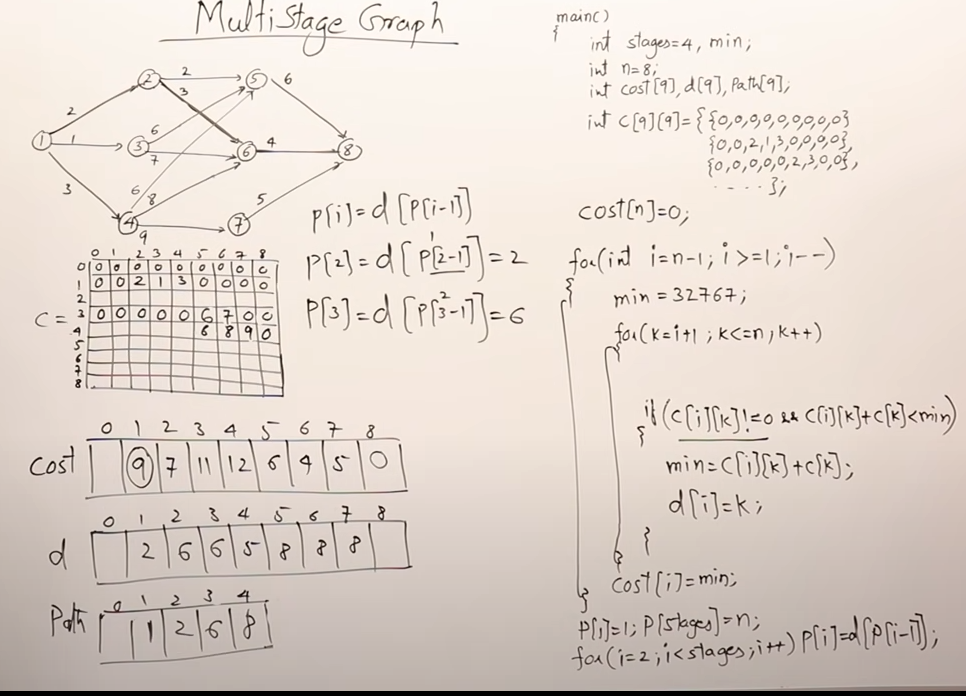 MultiStage Graph
2
2
5
6
2
3
1
1
3
6
7
6
4
8
3
6
8
5
4
9
7
P[i]=d[P[i-1]]
P[2]=d[P[2-1]]=2
1
P[3]=d[P[3-1]]=6
2
0 1 2 3 4 5 6 7 8
0 0 0 0 0 0 0 0 0 0
1 0 0 2 1 3 0 0 0 0
2
C = 3 0 0 0 0 0 6 7 0 0
4 6 8 9 0
5
6
7
8
0 1 2 3 4 5 6 7 8
Cost 9 7 11 12 6 4 5 0
0 1 2 3 4 5 6 7 8
d 2 6 6 5 8 8 8
0 1 2 3 4
Path 1 2 6 8
main()
{
int stages=4, min;
int n=8;
int cost[9], d[9], Path[9];
int C[9][9]={{0,0,0,0,0,0,0,0,0}
{0,0,2,1,3,0,0,0,0},
{0,0,0,0,0,2,3,0,0},
- - - - };
cost[n]=0;
for(int i=n-1; i>=1; i--)
{
min=32767;
for(k=i+1; k<=n; k++)
{
if(C[i][k]!=0 && C[i][k]+C[k]<min)
{
min=C[i][k]+C[k];
d[i]=k;
}
}
cost[i]=min;
}
P[1]=1; P[stages]=n;
for(i=2; i<stages; i++) P[i]=d[P[i-1]];